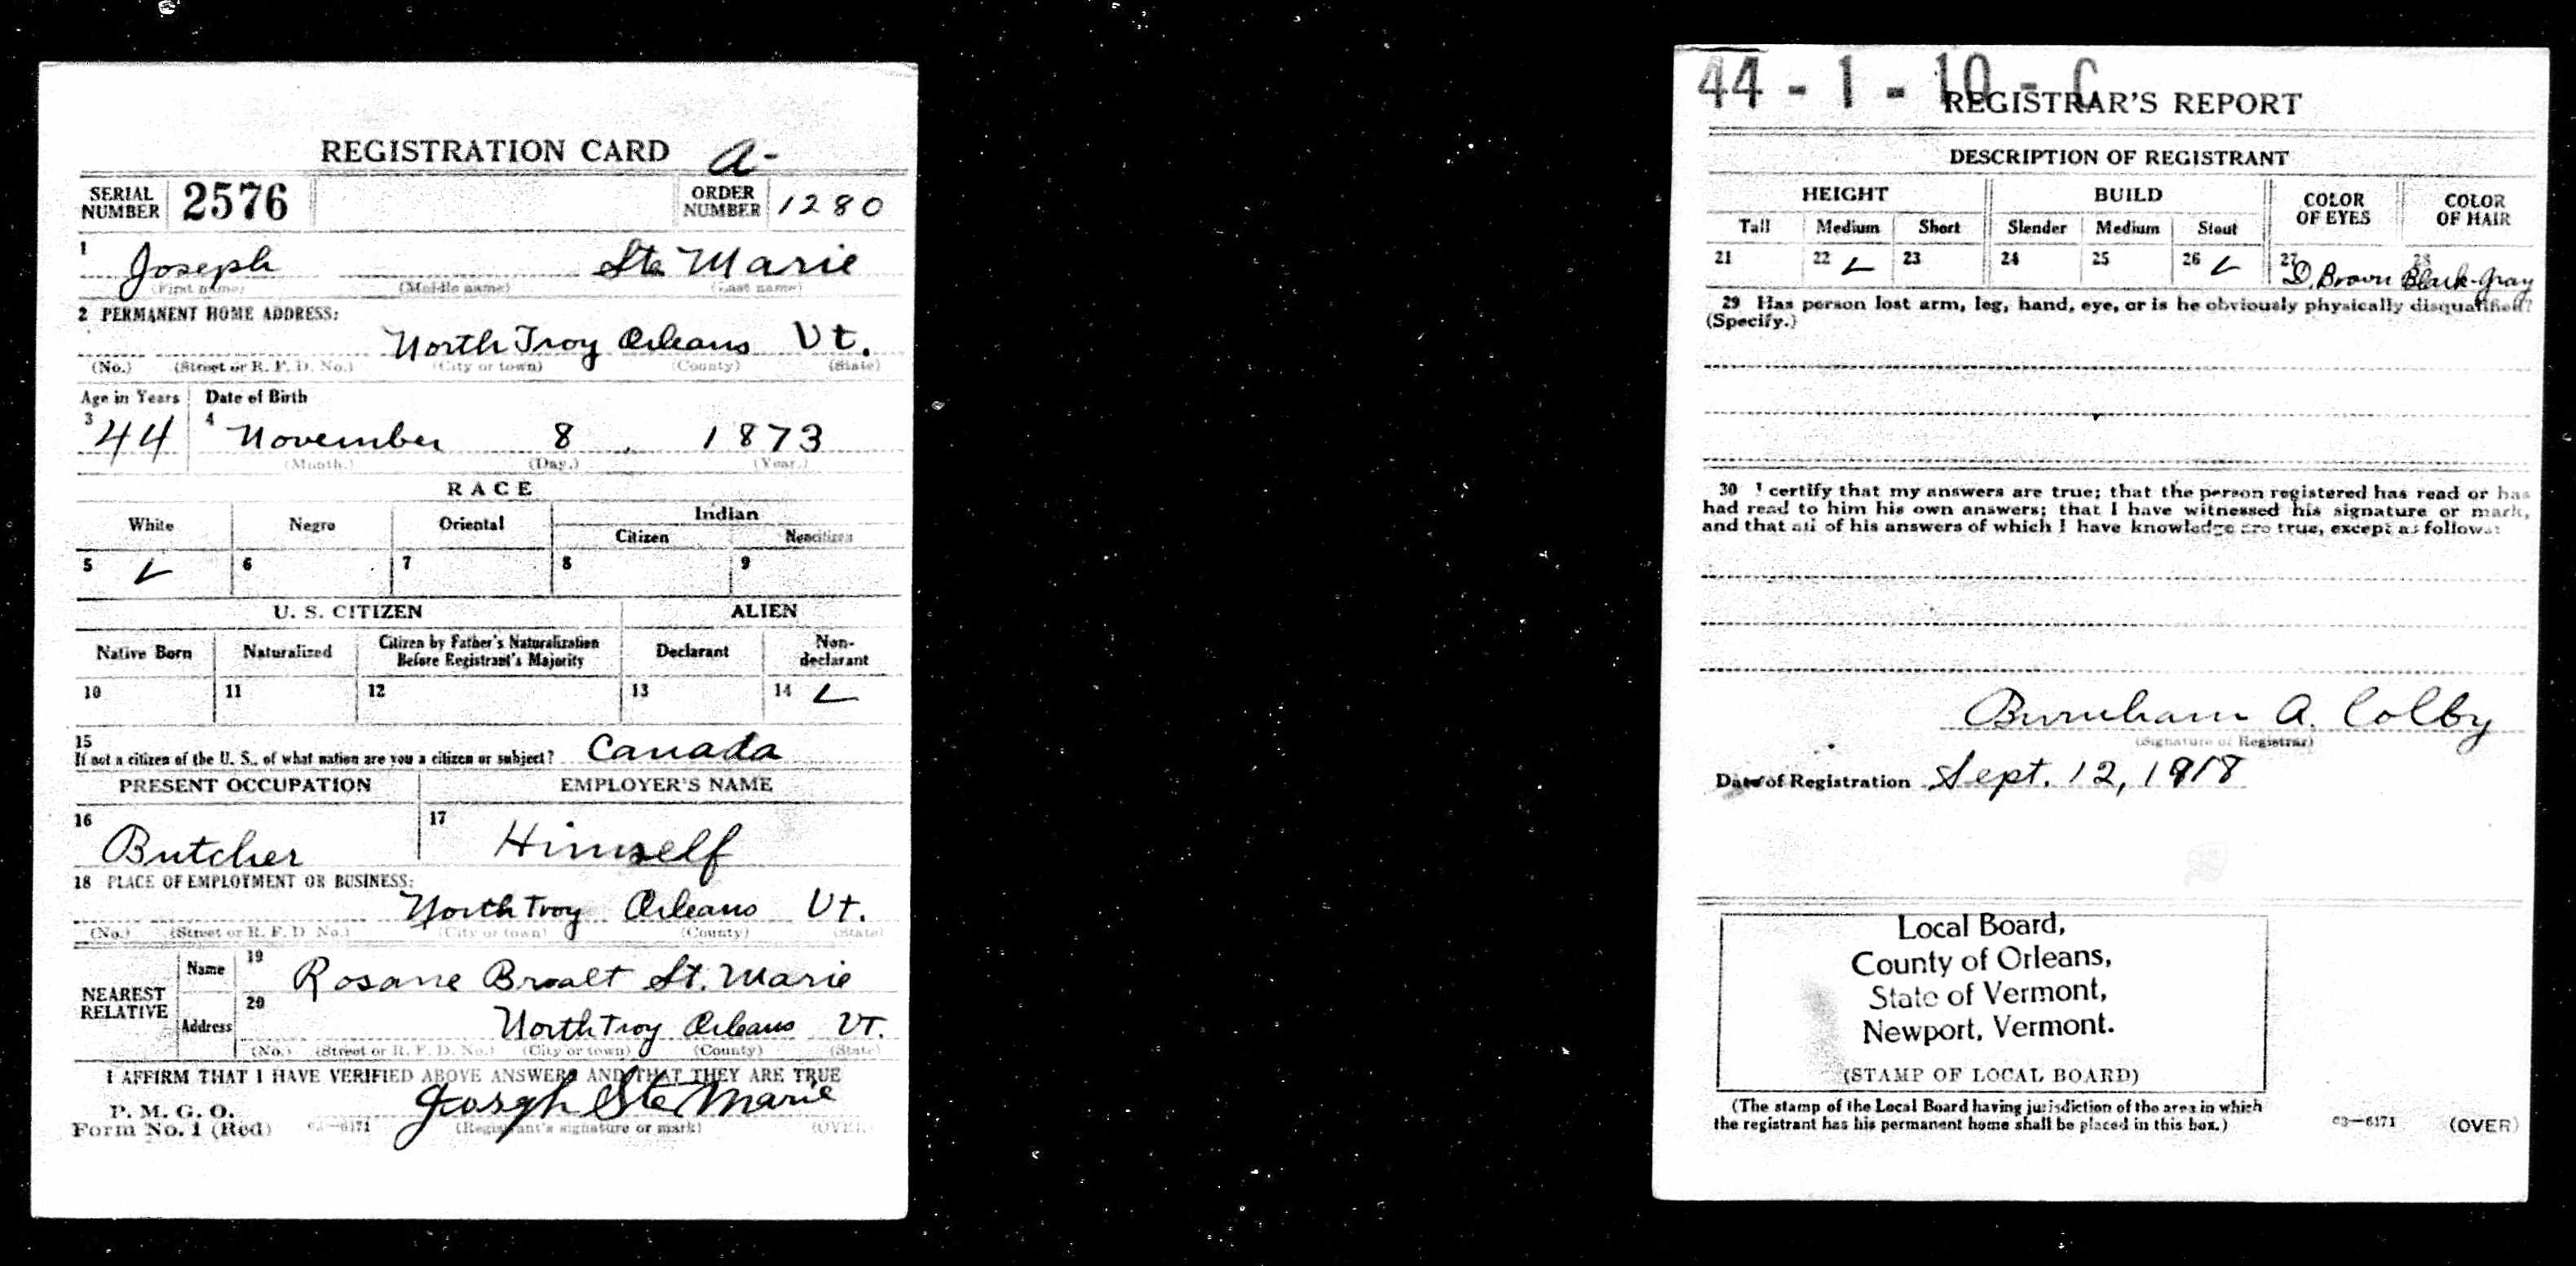 REGISTRATION CARD A-
SERIAL NUMBER 2576 ORDER NUMBER 1280
1 Joseph Ste Marie
(First name) (Middle name) (Last name)
2 PERMANENT HOME ADDRESS:
North Troy Orleans Vt.
(No.) (Street or R. F. D. No.) (City or town) (County) (State)
Age in Years Date of Birth
3 44 4 November 8, 1873
(Month.) (Day.) (Year.)
RACE
White Negro Oriental Indian
Citizen Noncitizen
5 ✓ 6 7 8 9
U. S. CITIZEN ALIEN
Native Born Naturalized Citizen by Father's Naturalization Before Registrant's Majority Declarant Non-declarant
10 11 12 13 14 ✓
15
If not a citizen of the U. S., of what nation are you a citizen or subject? Canada
PRESENT OCCUPATION EMPLOYER'S NAME
16 Butcher 17 Himself
18 PLACE OF EMPLOYMENT OR BUSINESS:
North Troy Orleans Vt.
(No.) (Street or R. F. D. No.) (City or town) (County) (State)
NEAREST RELATIVE Name 19 Rosane St. Marie
Address 20 North Troy Orleans VT.
(No.) (Street or R. F. D. No.) (City or town) (County) (State)
I AFFIRM THAT I HAVE VERIFIED ABOVE ANSWERS AND THAT THEY ARE TRUE
P. M. G. O.
Form No. 1 (Red) 03—6171 Joseph Ste Marie
(Registrant's signature or mark) (OVER)
44 - 1 - 10 - C
REGISTRAR'S REPORT
DESCRIPTION OF REGISTRANT
HEIGHT BUILD COLOR OF EYES COLOR OF HAIR
Tall Medium Short Slender Medium Stout
21 22 ✓ 23 24 25 26 ✓ 27 D. Brown 28 Black-Gray
29 Has person lost arm, leg, hand, eye, or is he obviously physically disqualified?
(Specify.)
30 I certify that my answers are true; that the person registered has read or has
had read to him his own answers; that I have witnessed his signature or mark,
and that all of his answers of which I have knowledge are true, except as follows:
Burnham A. Colby
(Signature of Registrar)
Date of Registration Sept. 12, 1918
Local Board,
County of Orleans,
State of Vermont,
Newport, Vermont.
(STAMP OF LOCAL BOARD)
(The stamp of the Local Board having jurisdiction of the area in which
the registrant has his permanent home shall be placed in this box.)
03—6171 (OVER)